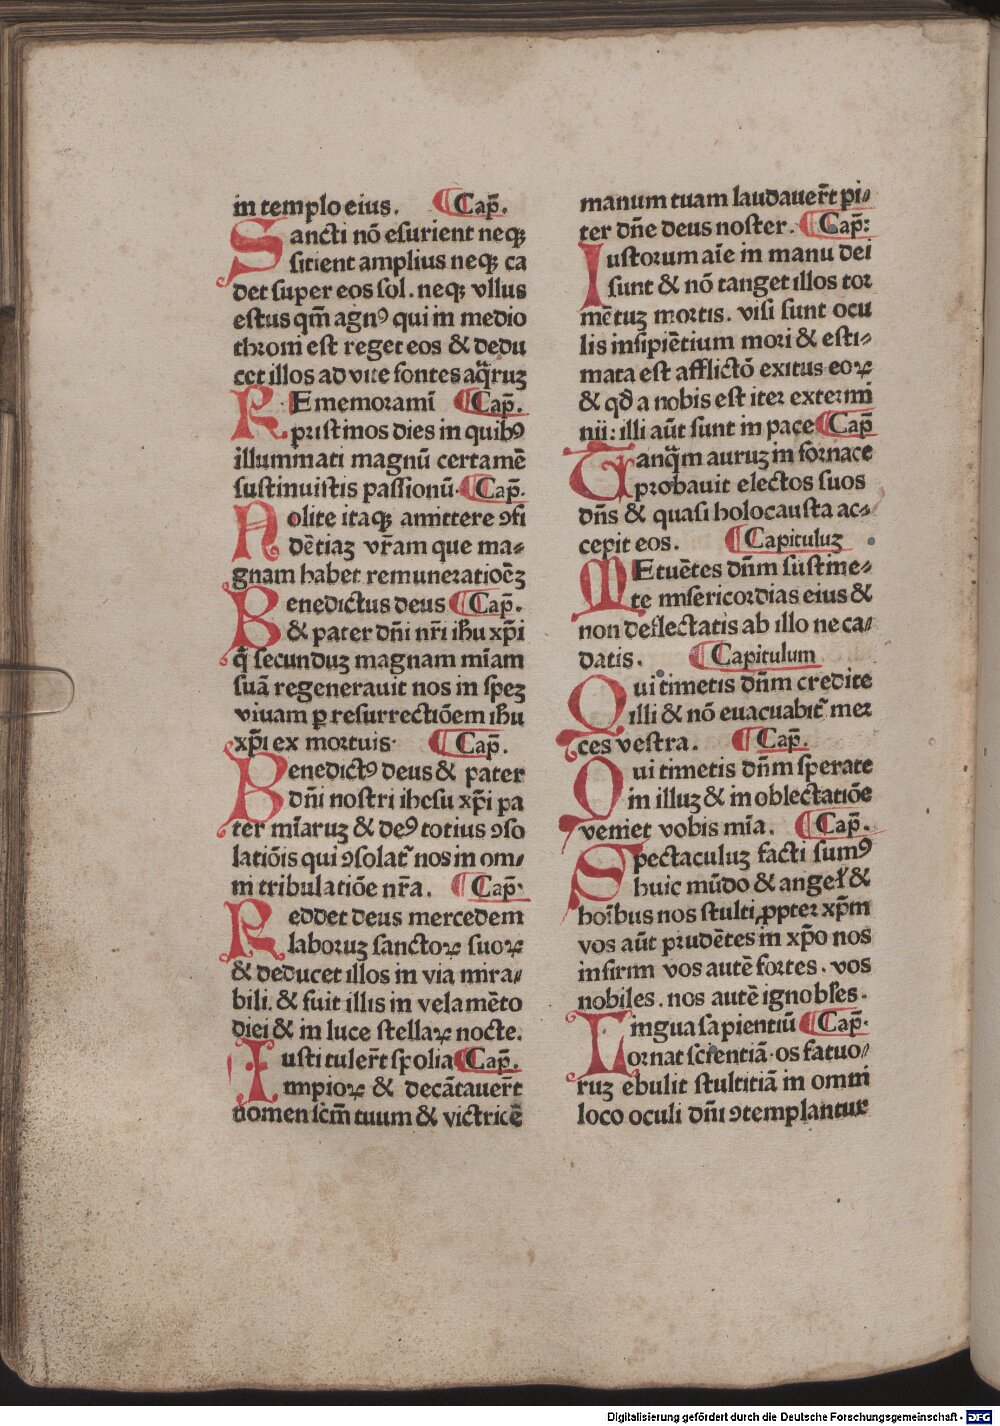 in templo eius. ¶Cap̃.
Sancti nō esurient neqꝫ
sitient amplius neqꝫ ca
det super eos sol. neqꝫ vllus
estus qm̃ agnꝰ qui in medio
throni est reget eos & dedu
cet illos ad vite fontes aq̃ruꝫ
REmemoramĩ ¶Cap̃.
pristinos dies in quibꝰ
illuminati magnū certamē
sustinuistis passionū. ¶Cap̃.
Nolite itaqꝫ amittere ꝯfi
dētiaꝫ vr̃am que ma⸗
gnam habet remuneratiōeꝫ
Benedictus deus ¶Cap̃.
& pater dñi nr̃i ih̃u xp̃i
q̃ secunduꝫ magnam miam̃
suā regenerauit nos in speꝫ
viuam ꝑ resurrectiōem ih̃u
xp̃i ex mortuis. ¶Cap̃.
Benedictꝰ deus & pater
dñi nostri ihesu xp̃i pa
ter mĩaruꝫ & deꝰ totius ꝯso
latiōis qui ꝯsolat̃ nos in om⸗
ni tribulatiōe nr̃a. ¶Cap̃.
Reddet deus mercedem
laboruꝫ sanctoꝝ suoꝝ
& deducet illos in via mira⸗
bili. & fuit illis in velamēto
diei & in luce stellaꝝ nocte.
Iusti tuler̃t spolia ¶Cap̃.
impioꝝ & decātauer̃t
nomen scm̃ tuum & victricē
manum tuam laudauer̃t pi⸗
ter dñe deus noster. ¶Cap̃:
Iustorum aĩe in manu dei
sunt & nō tanget illos tor
mētuꝫ mortis. visi sunt ocu
lis insipiētium mori & esti⸗
mata est afflictō exitus eoꝝ
& qđ a nobis est iter extermi
nii: illi aũt sunt in pace ¶Cap̃
Tanq̃m auruꝫ in fornace
probauit electos suos
dñs & quasi holocausta ac⸗
cepit eos. ¶Capituluꝫ
MEtuētes dñm sustine⸗
te misericordias eius &
non deflectatis ab illo ne ca⸗
datis. ¶Capitulum
Qui timetis dñm credite
illi & nō euacuabit̃ mer
ces vestra. ¶Cap̃.
Qui timetis dñm sperate
in illuꝫ & in oblectatiōe
veniet vobis mĩa. ¶Cap̃.
Spectaculuꝫ facti sumꝰ
huic mūdo & angeł &
hoĩbus nos stulti ꝓpter xp̃m
vos aũt prudētes in xp̃o nos
infirmi vos autē fortes. vos
nobiles. nos autē ignobɫes.
Lingua sapientiū ¶Cap̃.
ornat scientiā. os fatuo⸗
ruꝫ ebulit stultitiā in omni
loco oculi dñi ꝯtemplantur
Digitalisierung gefördert durch die Deutsche Forschungsgemeinschaft - DFG